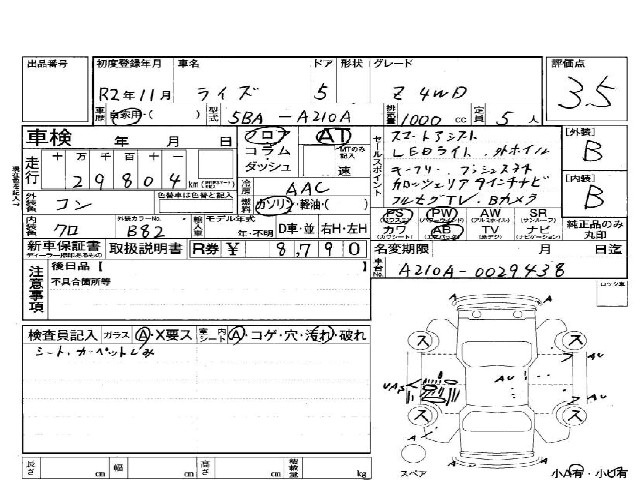 出品番号 初度登録年月 車名 ドア 形状 グレード 評価点
R2年11月 ライズ 5 Z 4WD 3.5
車歴 自家用・( ) 型式 5BA-A210A 排気量 1000 cc 定員 5人
車検 年 月 日 フロア AT セールスポイント スマートアシスト
コラム MTのみ記入 LEDライト、外ホイル
ダッシュ 速 キーフリー プッシュスタート
走行 十万千百十 29804 km 冷房 AAC カロッツェリア9インチナビ
外装色 コン 色替車は色替と記入 燃料 ガソリン・軽油・( ) フルセグTV、Bカメラ
内装色 クロ 外装カラーNo. B82 輸入車 モデル年式 年・不明 D車・並 右H・左H
PS PW AW SR
カワ AB TV ナビ
[外装] B
[内装] B
純正品のみ丸印
新車保証書 取扱説明書 R券 ¥ 8,790
名変期限 月 日迄
注意事項 後日品【 】
不具合箇所等
車台No. A210A-0029438
検査員記入 ガラス A・X要ス 室内シート A・コゲ・穴・汚れ・破れ
シート、カーペットしみ
ス ス ス ス
AU
AU
AU
スペア 小A有・小U有
長さ cm 幅 cm 高さ cm 積載量 kg